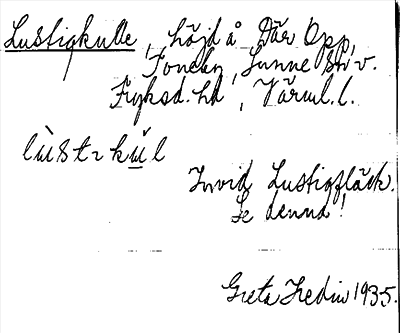 Lustigkulle, höjd å Där Opp,
Toneby, Sunne sn v.
Fryksd. hd, Värml. l.
lùstɩkùl
Invid Lustigfläck.
Se denna!
Greta Hedin 1935.